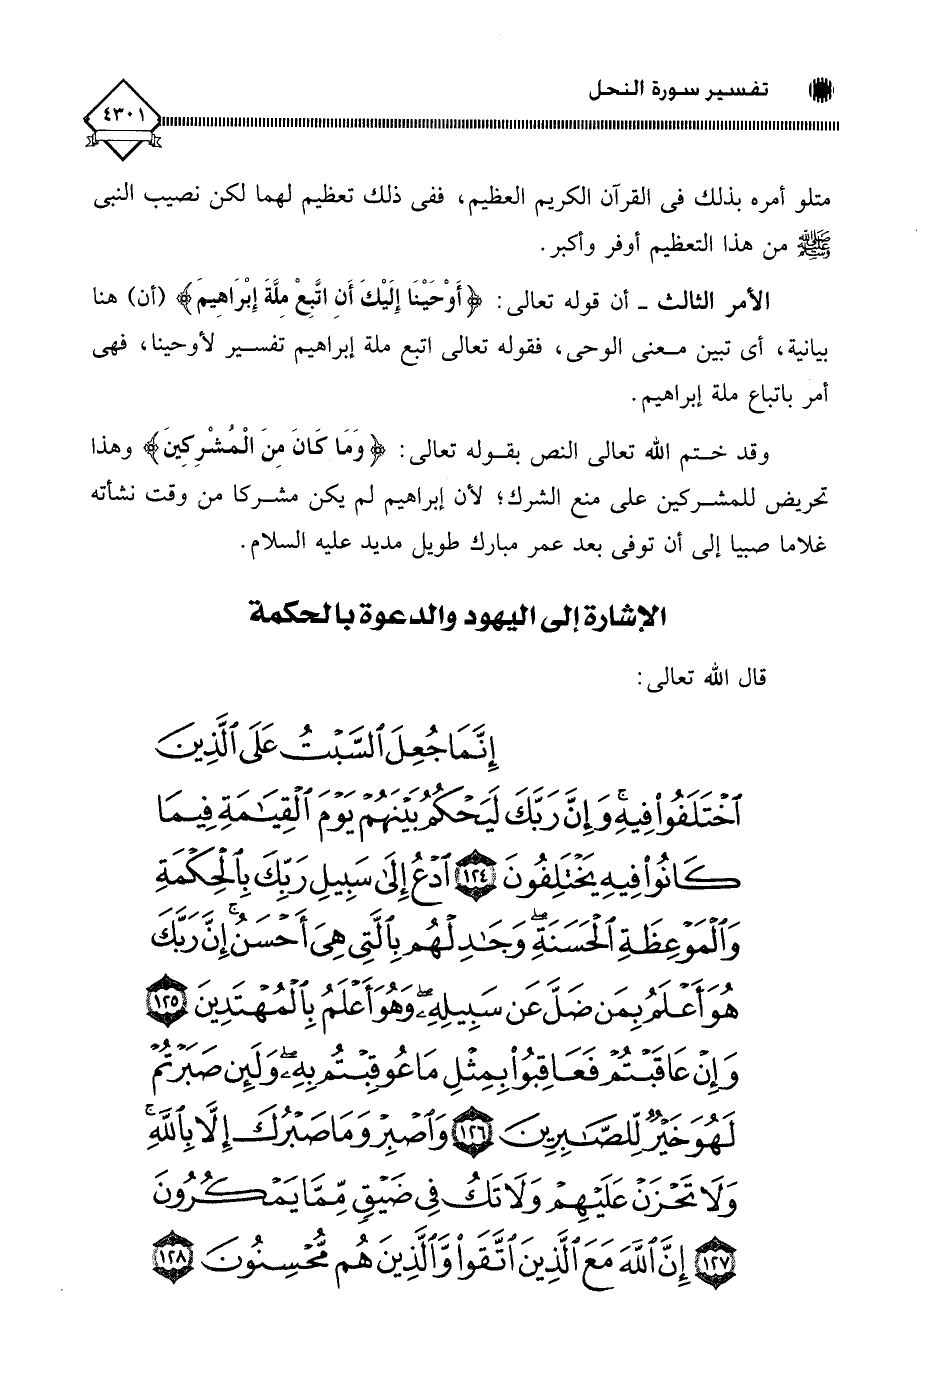 تفسير سورة النحل
٤٣٠١
متلو أمره بذلك فى القرآن الكريم العظيم، ففى ذلك تعظيم لهما لكن نصيب النبى
ﷺ من هذا التعظيم أوفر وأكبر.
الأمر الثالث ـ أن قوله تعالى: ﴿أَوْحَيْنَا إِلَيْكَ أَنِ اتَّبِعْ مِلَّةَ إِبْرَاهِيمَ﴾ (أن) هنا
بيانية، أى تبين معنى الوحى، فقوله تعالى اتبع ملة إبراهيم تفسير لأوحينا، فهى
أمر باتباع ملة إبراهيم.
وقد ختم الله تعالى النص بقوله تعالى: ﴿وَمَا كَانَ مِنَ الْمُشْرِكِينَ﴾ وهذا
تحريض للمشركين على منع الشرك؛ لأن إبراهيم لم يكن مشركا من وقت نشأته
غلاما صبيا إلى أن توفى بعد عمر مبارك طويل مديد عليه السلام.
الإشارة إلى اليهود والدعوة بالحكمة
قال الله تعالى:
إِنَّمَا جُعِلَ ٱلسَّبْتُ عَلَى ٱلَّذِينَ
ٱخْتَلَفُوا۟ فِيهِ ۚ وَإِنَّ رَبَّكَ لَيَحْكُمُ بَيْنَهُمْ يَوْمَ ٱلْقِيَـٰمَةِ فِيمَا
كَانُوا۟ فِيهِ يَخْتَلِفُونَ ١٢٤ ٱدْعُ إِلَىٰ سَبِيلِ رَبِّكَ بِٱلْحِكْمَةِ
وَٱلْمَوْعِظَةِ ٱلْحَسَنَةِ ۖ وَجَـٰدِلْهُم بِٱلَّتِى هِىَ أَحْسَنُ ۚ إِنَّ رَبَّكَ
هُوَ أَعْلَمُ بِمَن ضَلَّ عَن سَبِيلِهِۦ ۖ وَهُوَ أَعْلَمُ بِٱلْمُهْتَدِينَ ١٢٥
وَإِنْ عَاقَبْتُمْ فَعَاقِبُوا۟ بِمِثْلِ مَا عُوقِبْتُم بِهِۦ ۖ وَلَئِن صَبَرْتُمْ
لَهُوَ خَيْرٌ لِّلصَّـٰبِرِينَ ١٢٦ وَٱصْبِرْ وَمَا صَبْرُكَ إِلَّا بِٱللَّهِ ۚ
وَلَا تَحْزَنْ عَلَيْهِمْ وَلَا تَكُ فِى ضَيْقٍ مِّمَّا يَمْكُرُونَ
١٢٧ إِنَّ ٱللَّهَ مَعَ ٱلَّذِينَ ٱتَّقَوا۟ وَّٱلَّذِينَ هُم مُّحْسِنُونَ ١٢٨